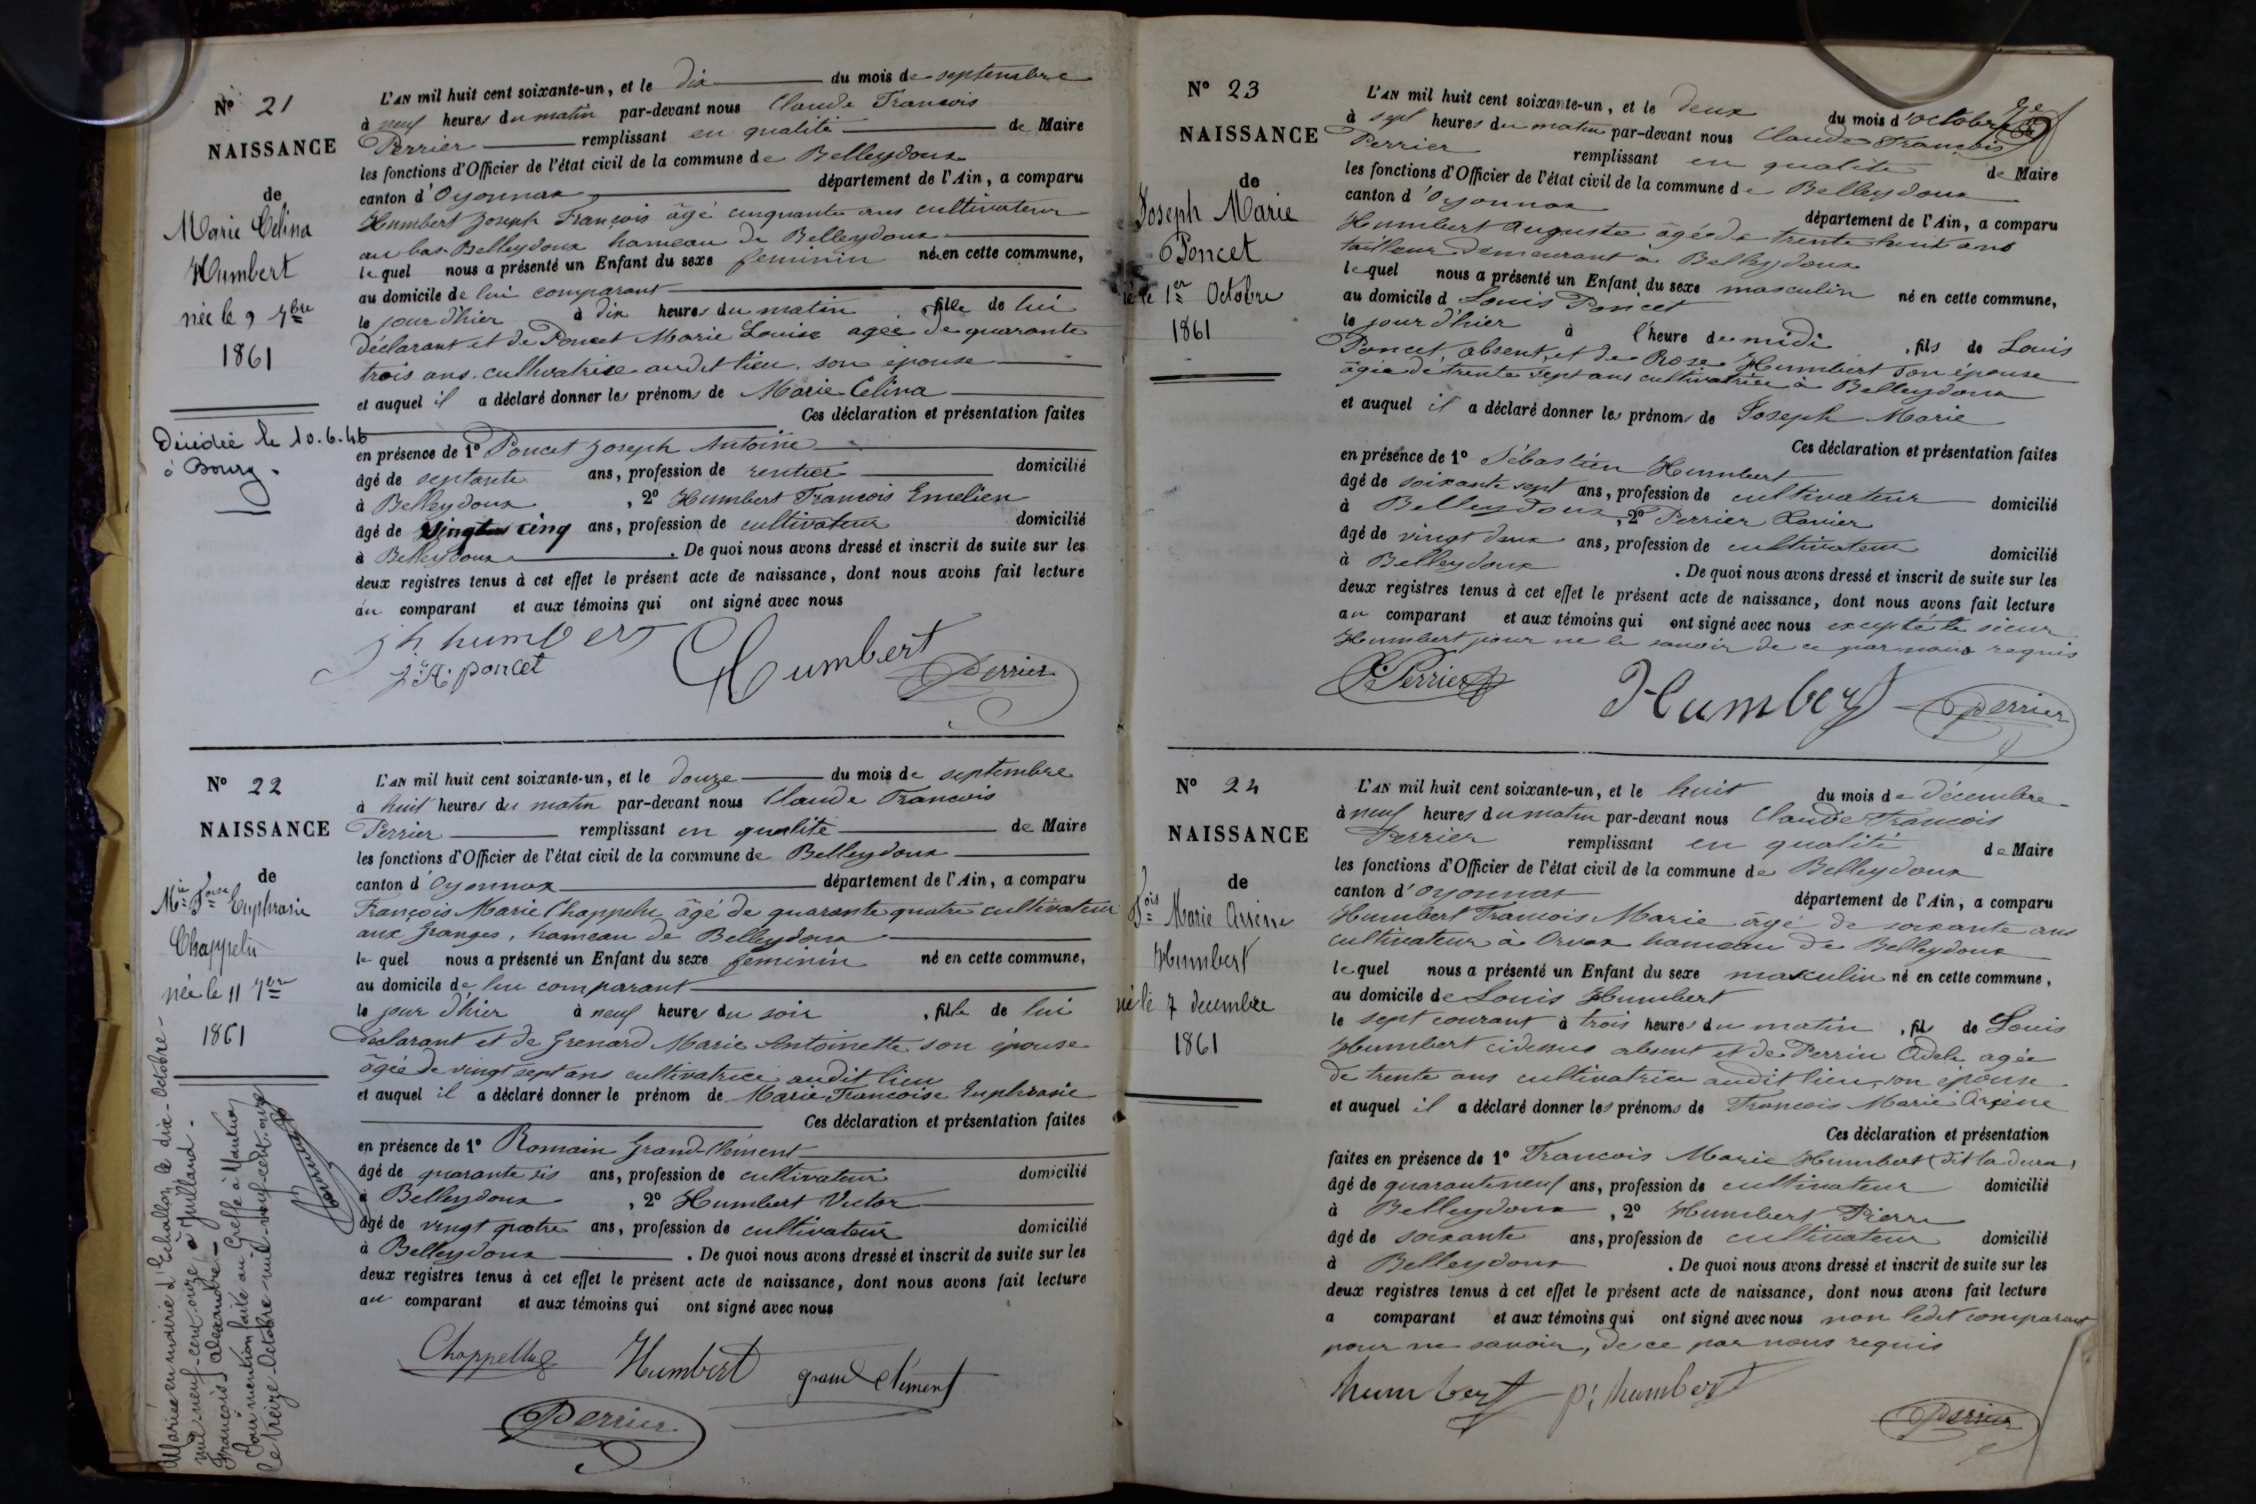 N° 21
NAISSANCE
de
Marie Célina
Humbert
née le 9 7bre
1861
Décédée le 10.6.46
à Bourg.
L'AN mil huit cent soixante-un, et le dix du mois de septembre
à neuf heures du matin par-devant nous Claude Francois
Perrier remplissant en qualité de Maire
les fonctions d'Officier de l'état civil de la commune de Belleydoux
canton d'Oyonnax département de l'Ain, a comparu
Humbert Joseph François âgé cinquante ans cultivateur
au bas Belleydoux hameau de Belleydoux
lequel nous a présenté un Enfant du sexe feminin né en cette commune,
au domicile de lui comparant
le jour d'hier à dix heures du matin, fille de lui
déclarant et de Poncet Marie Louise agée de quarante
trois ans cultivatrice audit lieu son épouse
et auquel il a déclaré donner les prénoms de Marie Célina
Ces déclaration et présentation faites
en présence de 1° Poncet Joseph Antoine
âgé de septante ans, profession de rentier domicilié
à Belleydoux, 2° Humbert Francois Emelien
âgé de vingt cinq ans, profession de cultivateur domicilié
à Belleydoux. De quoi nous avons dressé et inscrit de suite sur les
deux registres tenus à cet effet le présent acte de naissance, dont nous avons fait lecture
au comparant et aux témoins qui ont signé avec nous
jh humbert
j. A. poncet
Humbert
Perrier
N° 22
NAISSANCE
de
Mie Foise Euphrasie
Chappelu
née le 11 7bre
1861
Mariée en mairie d'Echallon, le dix-Octobre-
mil-neuf-cent-onze à Juilland-
François Alexandre-
Pour mention faite au Greffe à Nantua
le treize-Octobre-mil-neuf-cent-onze
L'AN mil huit cent soixante-un, et le douze du mois de septembre
à huit heures du matin par-devant nous Claude Francois
Perrier remplissant en qualité de Maire
les fonctions d'Officier de l'état civil de la commune de Belleydoux
canton d'Oyonnax département de l'Ain, a comparu
François Marie Chappelu âgé de quarante quatre cultivateur
aux Granges, hameau de Belleydoux
lequel nous a présenté un Enfant du sexe feminin né en cette commune,
au domicile de lui comparant
le jour d'hier à neuf heures du soir, fille de lui
déclarant et de Grenard Marie Antoinette son épouse
âgée de vingt sept ans cultivatrice audit lieu
et auquel il a déclaré donner le prénom de Marie Francoise Euphrasie
Ces déclaration et présentation faites
en présence de 1° Romain Grand-Clément
âgé de quarante six ans, profession de cultivateur domicilié
à Belleydoux, 2° Humbert Victor
âgé de vingt quatre ans, profession de cultivateur domicilié
à Belleydoux. De quoi nous avons dressé et inscrit de suite sur les
deux registres tenus à cet effet le présent acte de naissance, dont nous avons fait lecture
au comparant et aux témoins qui ont signé avec nous
Chappellu Humbert grand Clément
Perrier
N° 23
NAISSANCE
de
Joseph Marie
Poncet
né le 1er Octobre
1861
L'AN mil huit cent soixante-un, et le deux du mois d'octobre
à sept heures du matin par-devant nous Claude François
Perrier remplissant en qualité de Maire
les fonctions d'Officier de l'état civil de la commune de Belleydoux
canton d'Oyonnax département de l'Ain, a comparu
Humbert Auguste âgé de trente huit ans
tailleur demeurant à Belleydoux
lequel nous a présenté un Enfant du sexe masculin né en cette commune,
au domicile d Louis Poncet
le jour d'hier à l'heure de midi, fils de Louis
Poncet, absent, et de Rose Humbert son épouse
âgée de trente sept ans cultivatrice à Belleydoux
et auquel il a déclaré donner les prénoms de Joseph Marie
Ces déclaration et présentation faites
en présence de 1° Sébastien Humbert
âgé de soixante sept ans, profession de cultivateur domicilié
à Belleydoux, 2° Perrier Xavier
âgé de vingt deux ans, profession de cultivateur domicilié
à Belleydoux. De quoi nous avons dressé et inscrit de suite sur les
deux registres tenus à cet effet le présent acte de naissance, dont nous avons fait lecture
au comparant et aux témoins qui ont signé avec nous excepté le sieur
Humbert pour ne le savoir de ce par nous requis
Perrier Humbert Perrier
N° 24
NAISSANCE
de
Fois Marie Arsène
Humbert
né le 7 decembre
1861
L'AN mil huit cent soixante-un, et le huit du mois de décembre
à neuf heures du matin par-devant nous Claude Francois
Perrier remplissant en qualité de Maire
les fonctions d'Officier de l'état civil de la commune de Belleydoux
canton d'Oyonnax département de l'Ain, a comparu
Humbert Francois Marie âgé de soixante ans
cultivateur à Orvaz hameau de Belleydoux
lequel nous a présenté un Enfant du sexe masculin né en cette commune,
au domicile de Louis Humbert
le sept courant à trois heures du matin, fils de Louis
Humbert cidessus absent et de Perrin Adele agée
de trente ans cultivatrice audit lieu, son épouse
et auquel il a déclaré donner les prénoms de Francois Marie Arsène
Ces déclaration et présentation
faites en présence de 1° Francois Marie Humbert (dit la dura,
âgé de quarante neuf ans, profession de cultivateur domicilié
à Belleydoux, 2° Humbert Pierre
âgé de soixante ans, profession de cultivateur domicilié
à Belleydoux. De quoi nous avons dressé et inscrit de suite sur les
deux registres tenus à cet effet le présent acte de naissance, dont nous avons fait lecture
a comparant et aux témoins qui ont signé avec nous non ledit comparant
pour ne savoir, de ce par nous requis
humbert p: humbert
Perrier